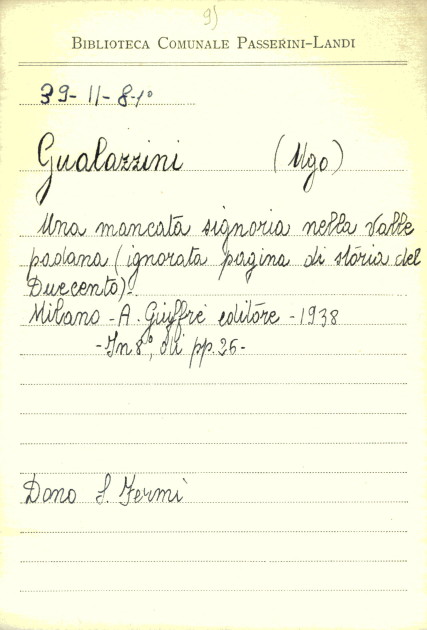 9)
BIBLIOTECA COMUNALE PASSERINI-LANDI
39-11-8-1°
Gualazzini (Ugo)
Una mancata signoria nella Valle
padana (ignorata pagina di storia del
Duecento)-
Milano - A. Giuffrè editore - 1938
- In 8°, di pp. 26-
Dono S. Fermi